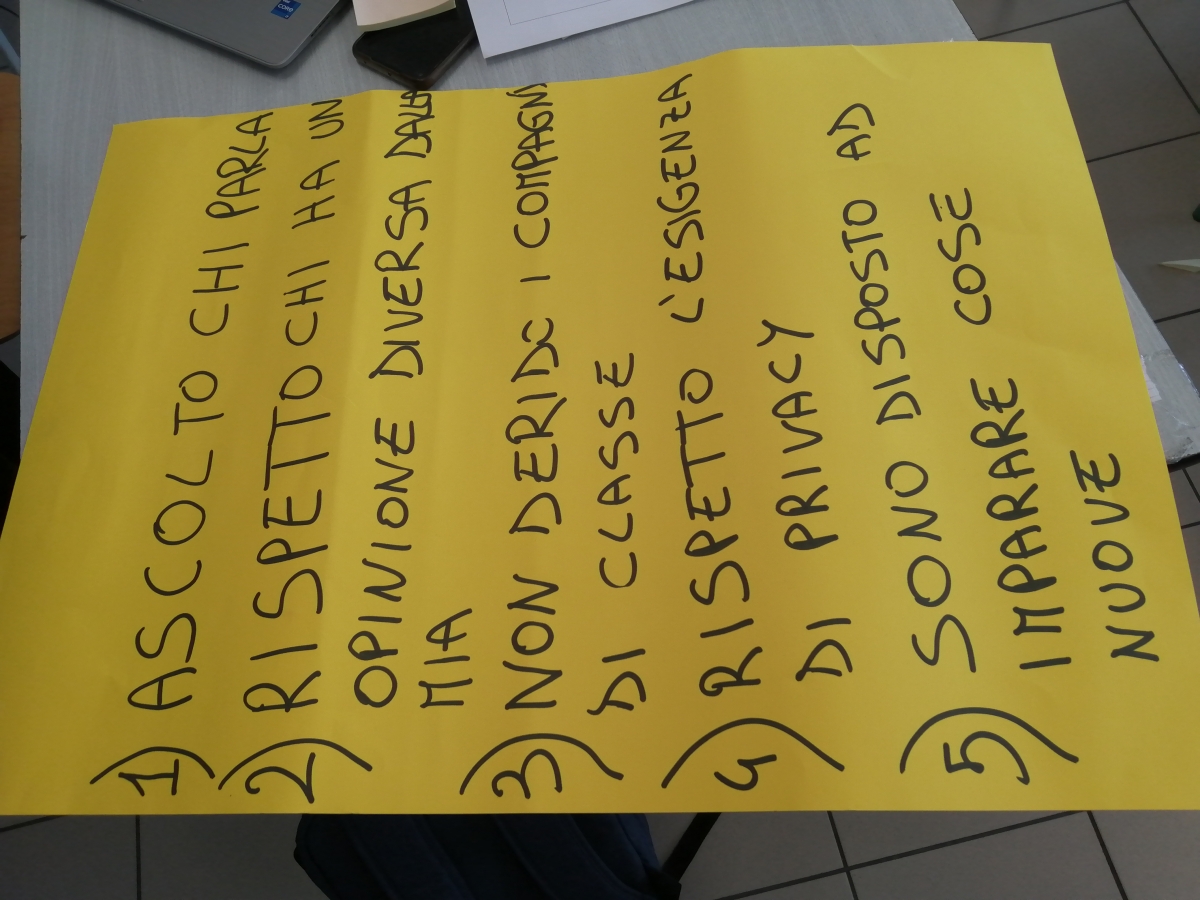 1) ASCOLTO CHI PARLA
2) RISPETTO CHI HA UN
OPINIONE DIVERSA DALLA
MIA
3) NON DERIDO I COMPAGNI
DI CLASSE
4) RISPETTO L'ESIGENZA
DI PRIVACY
5) SONO DISPOSTO AD
IMPARARE COSE
NUOVE
intel
CORE